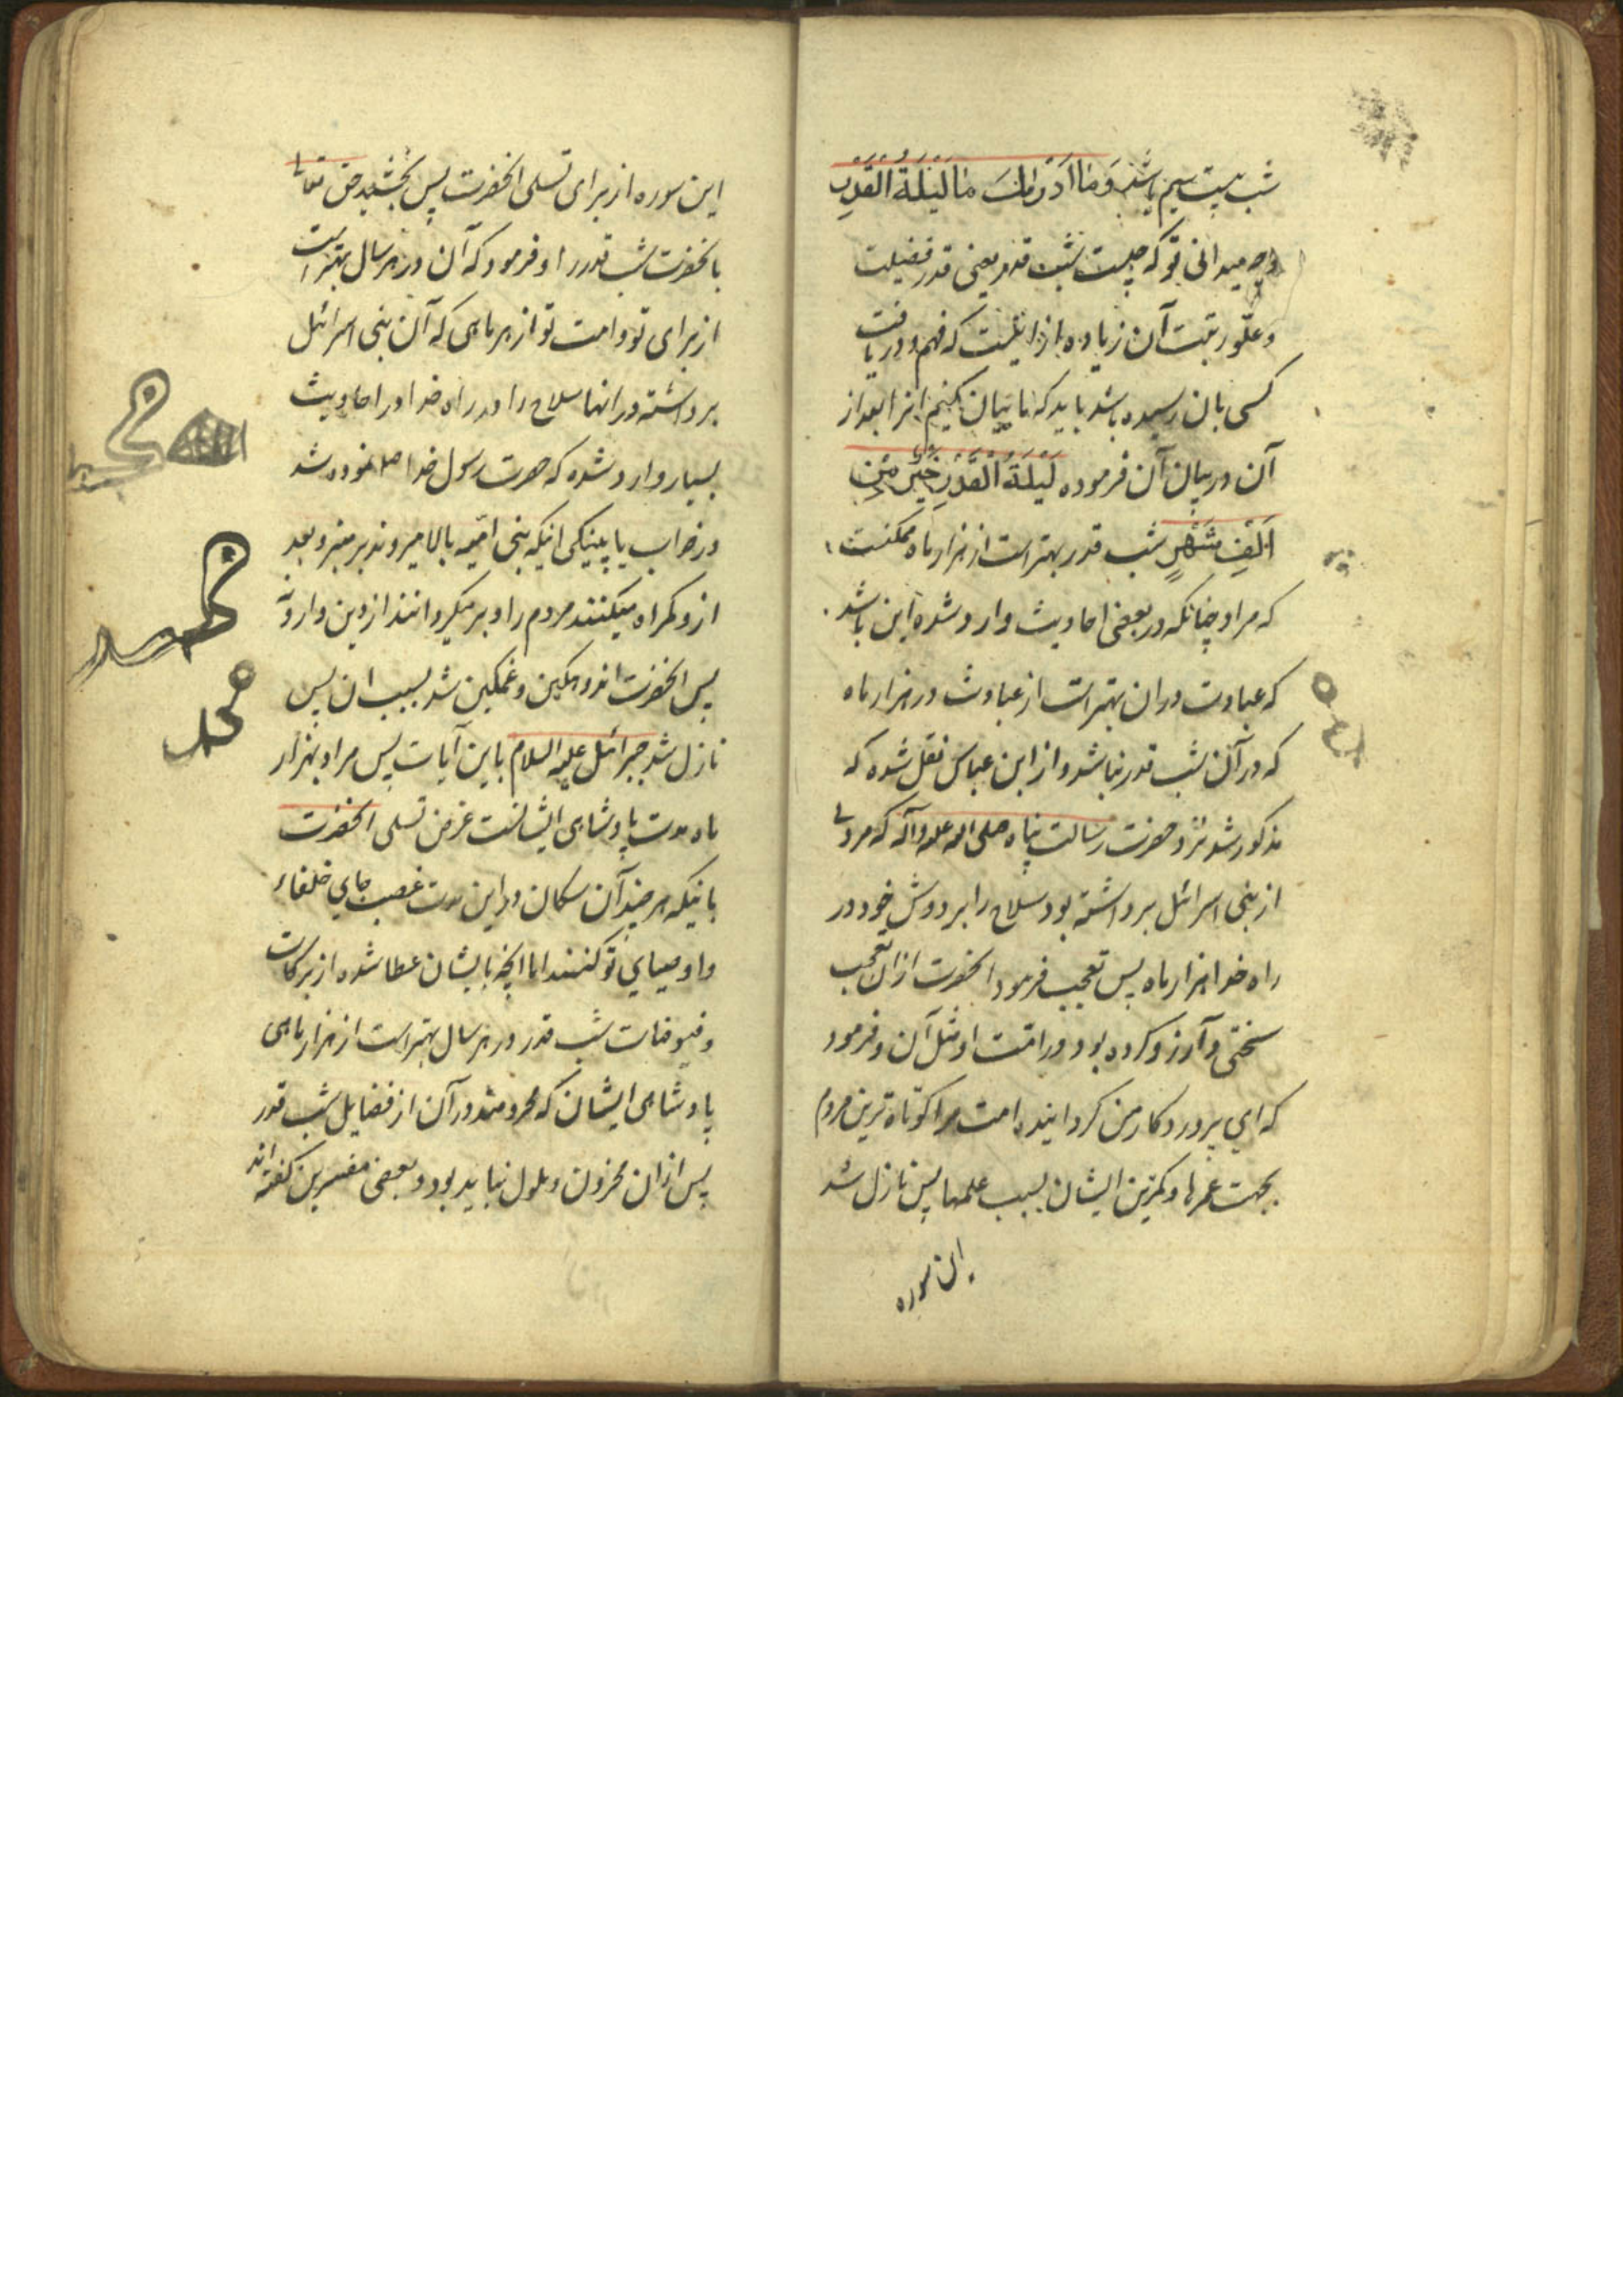 شب بیست سیم باشد وَمَا اَدْرٰیكَ مَا لَیْلَةُ الْقَدْرِ
و چه میدانی تو که چیست شب قدر یعنی قدر فضیلت
و علّو رتبت آن زیاده از انیست که فهم و دریافت
کسی بان رسیده باشد باید که ما بیان کنیم انرا بعد از
آن در بیان آن فرموده لَیْلَةُ الْقَدْرِ خَیْرٌ مِنْ
اَلْفِ شَهْرٍ شب قدر بهتر است از هزار ماه ممکنست
که مراد چنانکه در بعضی احادیث وارد شده این باشد
که عبادت در ان بهتر است از عبادت در هزار ماه
که در آن شب قدر نباشد و از ابن عباس نقل شده که
مذکور شد نزد حضرت رسالت پناه صلی اله علیه وآله که مردی
از بنی اسرائل برداشته بود سلاح را بر دوش خود در
راه خدا هزار ماه پس تعجب فرمود انحضرت ازان تعجب
سختی و آرزو کرده بود در امّت او مثل آن و فرمود
که ای پروردکار من کردانیده امت مرا کوتاه ترین مردم
بجهت عمرها و کمترین ایشان بسبب علمها پس نازل شد
این سوره
این سوره از برای تسلی انحضرت پس بخشید حق تعالی
بانحضرت شب قدر را و فرمود که آن در هر سال بهتر است
از برای تو و امت تو از هر ماهی که آن بنی اسرائل
برداشته در انها سلاح را در راه خدا و در احادیث
بسیار وارد شده که حضرت رسول خدا صلعم نموده شد
در خواب یا پینکی انیکه بنی امّیه بالا میروند بر منبر و بعد
از و کمراه میکنند مردم را و بر میکردانند از دین
پس انحضرت اندوهکین و غمکین شد بسبب ان پس
نازل شد جبرائل علیه السلام باین آیات پس مراد بهزار
ماه مدت پادشاهی ایشانست غرض تسلی انحضرت
بانیکه هر چند آن سکان در این مدت غصب جای خلفاء
و اوصیای تو کنند اما انچه بایشان عطا شده از برکات
و فیوضات شب قدر در هر سال بهتر است از هزار ماهی
پادشاهی ایشان که محرومند در آن از فضایل شب قدر
پس ازان محزون و ملول نباید بود و بعضی مفسرین کفته اند
محمد
محمد